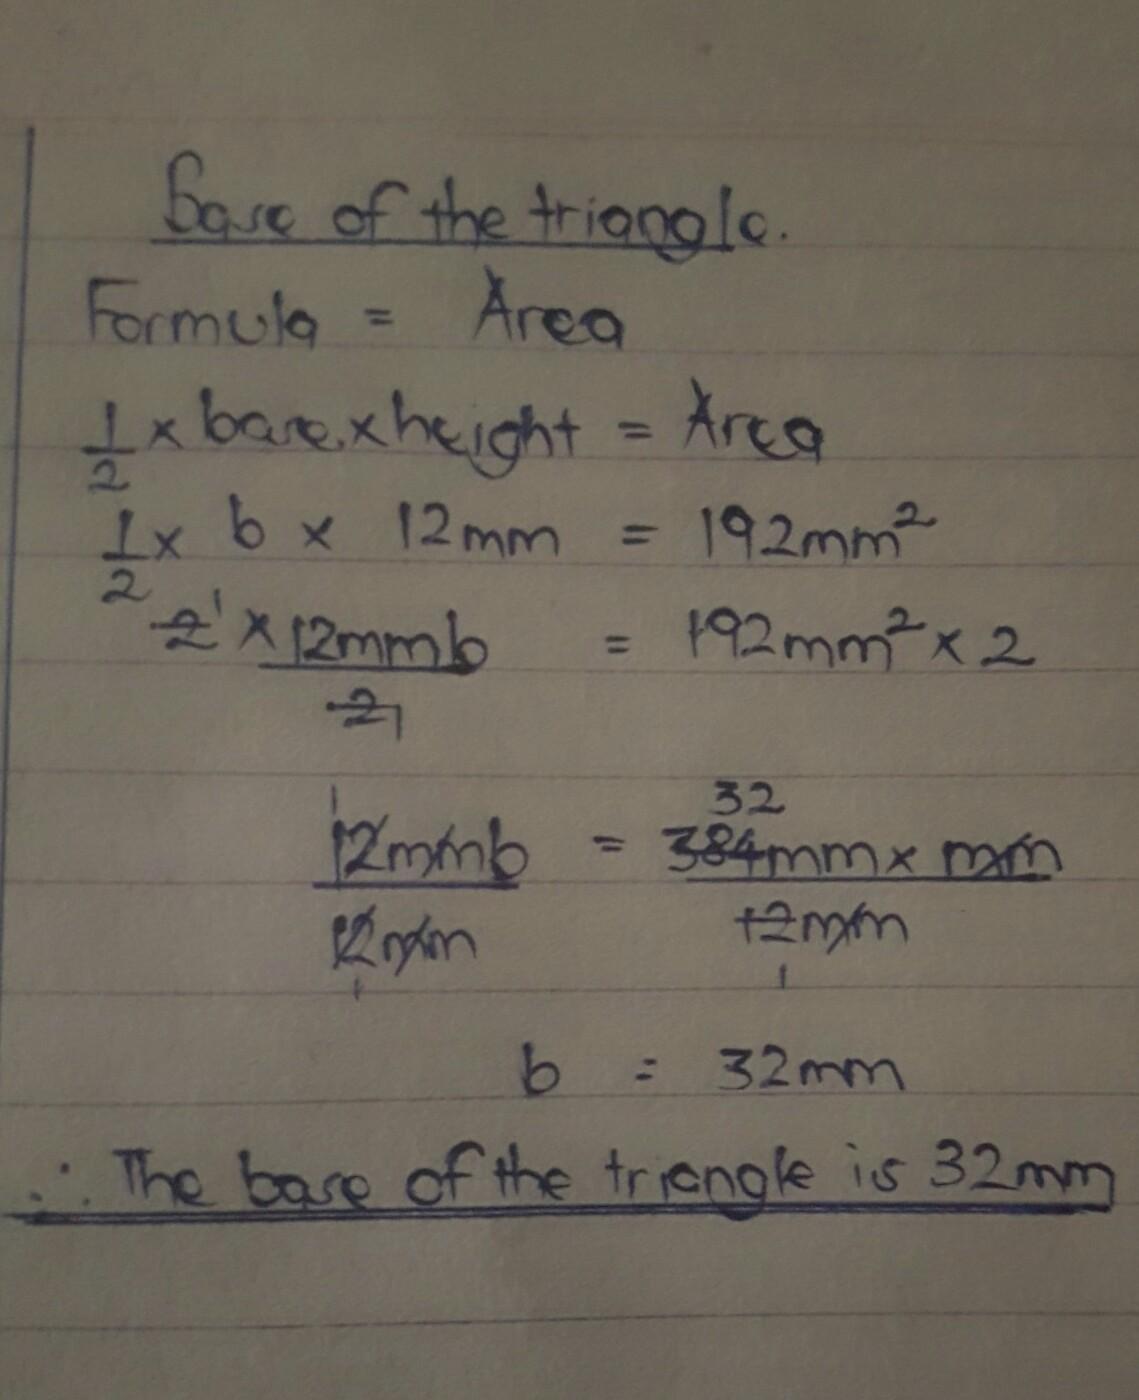 Base of the triangle.
Formula = Area
1/2 x base x height = Area
1/2 x b x 12mm = 192mm²
2 1 x 12mmb / 2 1 = 192mm² x 2
1 32
12mmb / 12mm = 384mm x mm / 12mm
1 1
b = 32mm
∴ The base of the triangle is 32mm